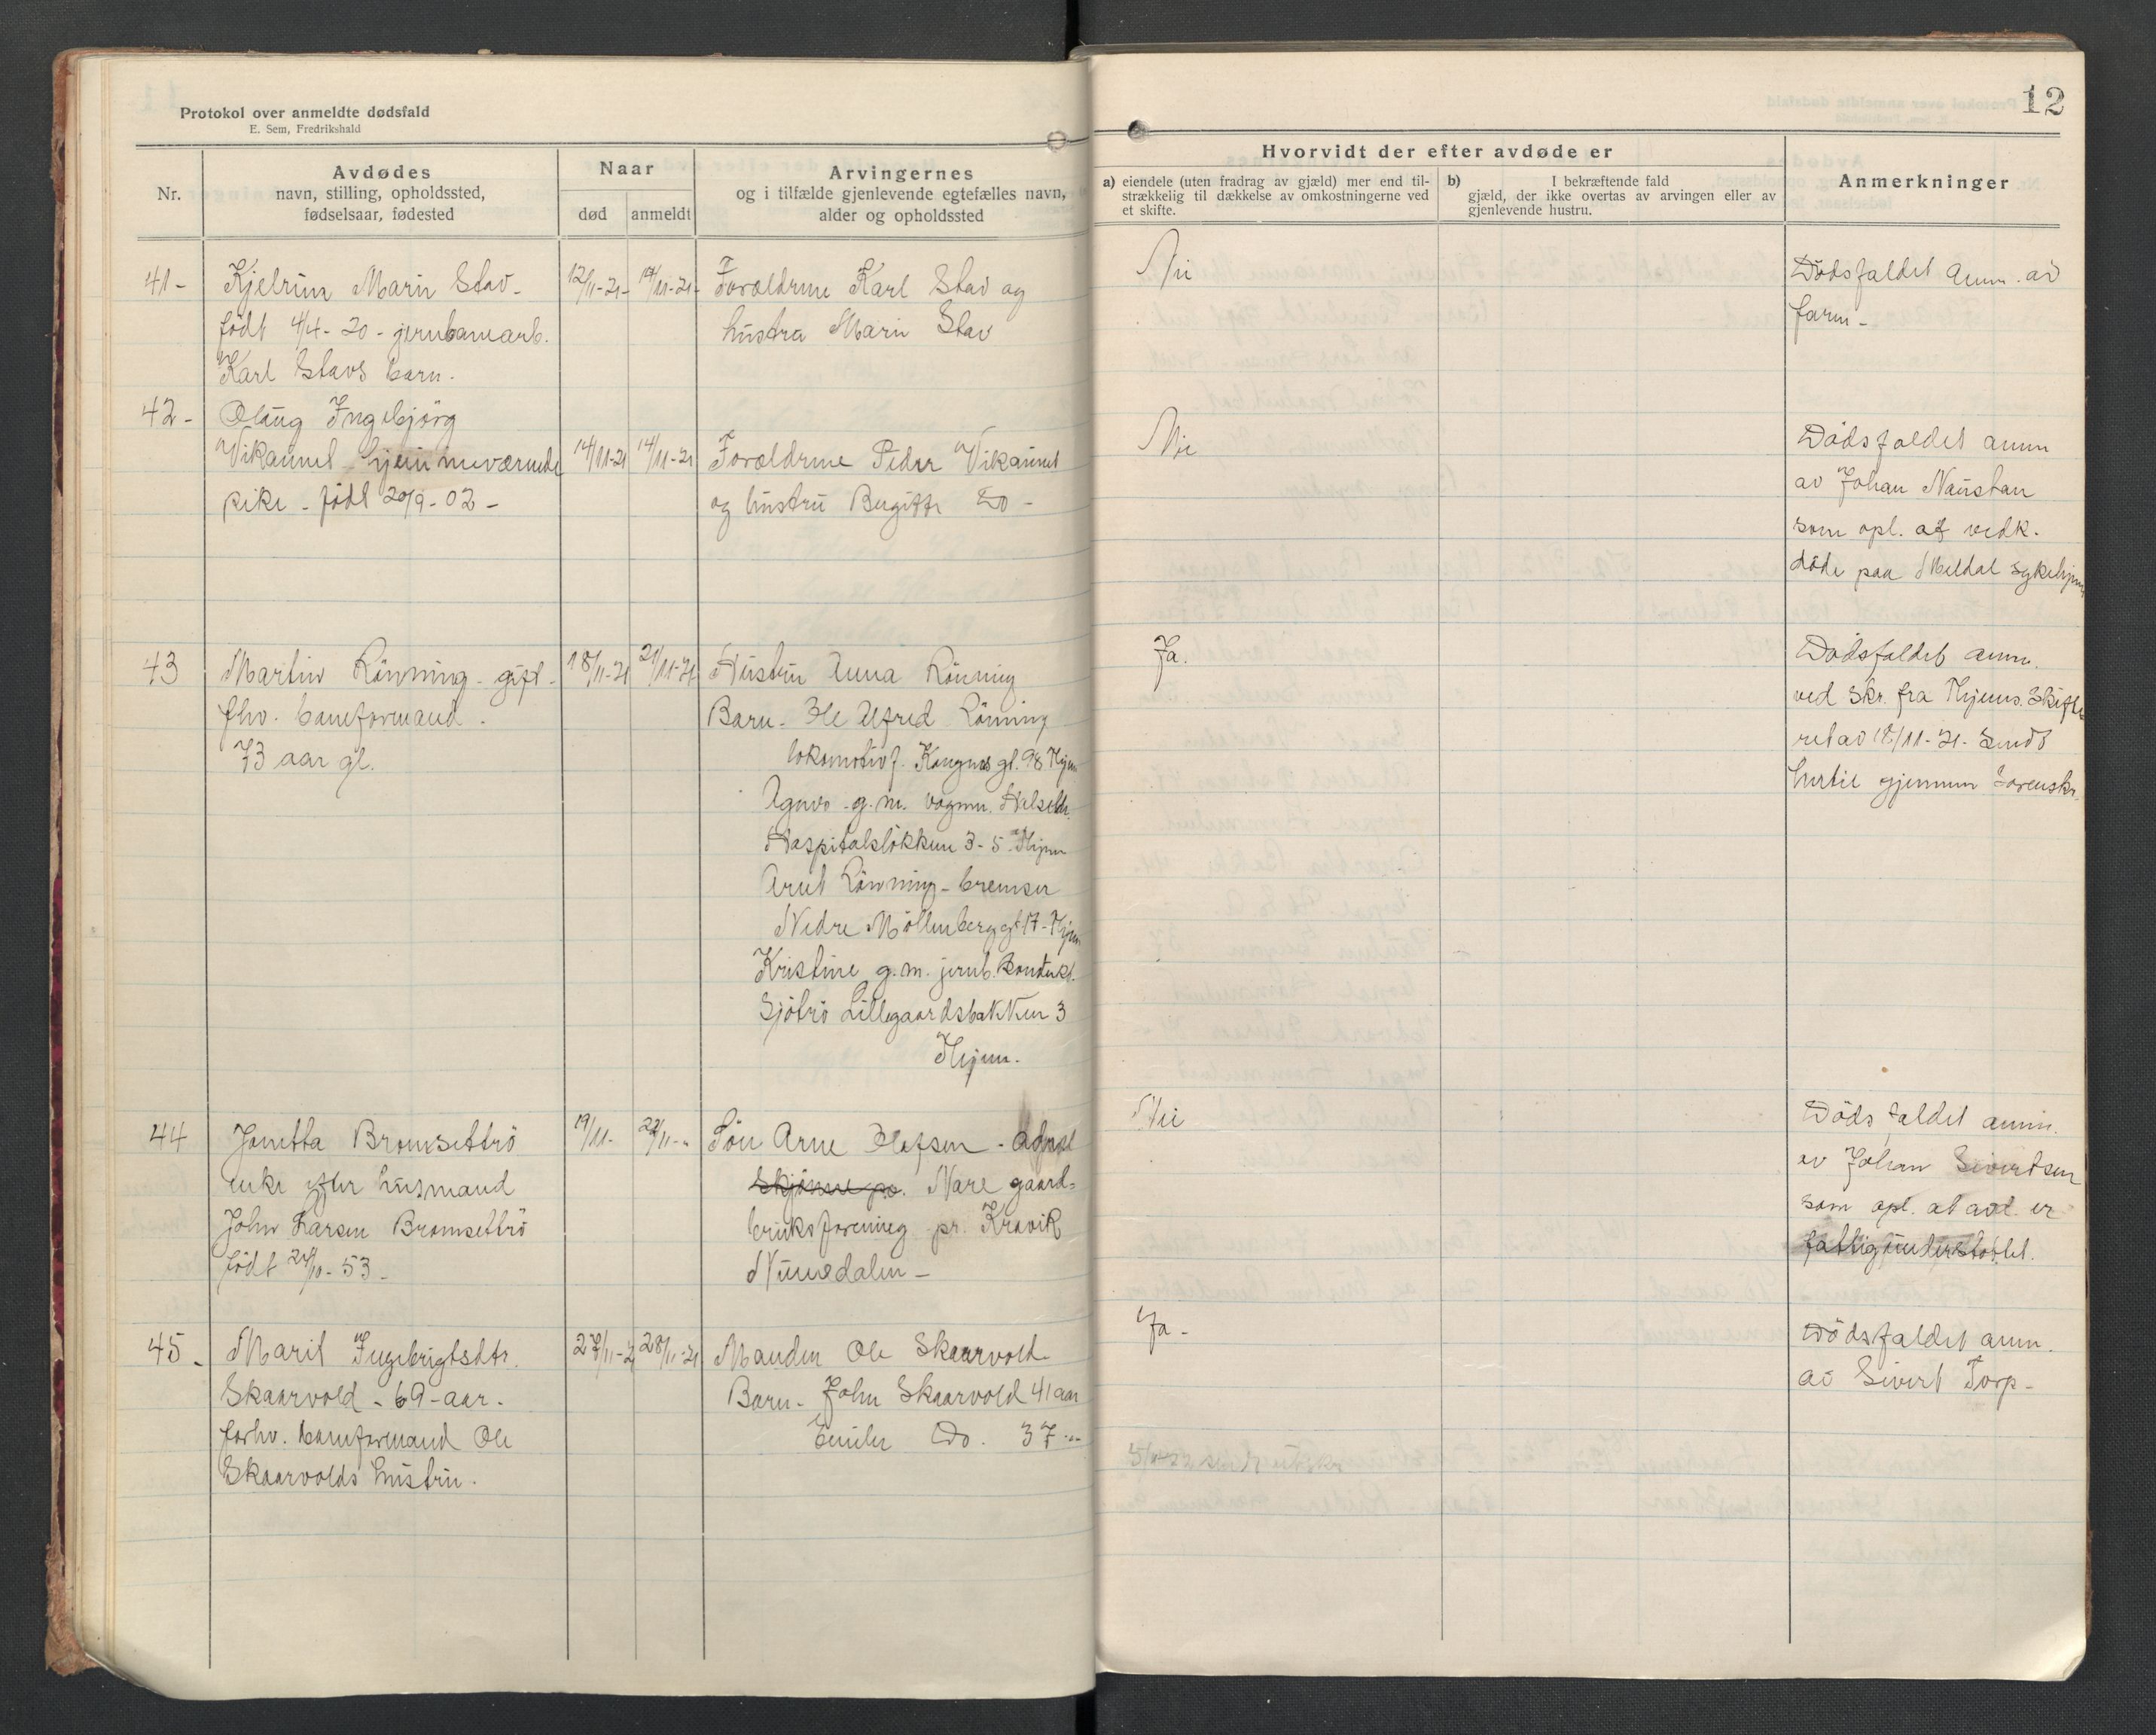 Protokol over anmeldte dødsfald
E. Sem, Fredrikshald
12
Nr.
Avdødes
navn, stilling, opholdssted,
fødselsaar, fødested
Naar
død
anmeldt
Arvingernes
og i tilfælde gjenlevende egtefælles navn,
alder og opholdssted
Hvorvidt der efter avdøde er
a) eiendele (uten fradrag av gjæld) mer end til-
strækkelig til dækkelse av omkostningerne ved
et skifte.
b) I bekræftende fald
gjæld, der ikke overtas av arvingen eller av
gjenlevende hustru.
Anmerkninger
41- Kjelrun Marie Stav- 12/11-21- 14/11-21- Forældrene Karl Stav og Nei Dödsfaldet anm. av
født 4/4-20- jernbanearb. hustru Marie Stav faren-
Karl Stavs barn.
42- Olaug Ingebjörg
Vikaunet hjemmeværende 14/11-21 14/11-21 Forældrene Peder Vikaunet Nei Dödsfaldet anm
pike - född 20/9-02- og hustru Bergitte Do- av Johan Naustan
som opl. at vedk.
döde paa Meldal sykehjem
43 Martin Rönning - gift- 18/11-21 21/11-21 Hustru Anna Rönning Ja. Dödsfaldet anm.
fhv. baneformand. Barn- Ole Alfred Rönning ved Skr. fra Thjems. Skifte
73 aar gl. lokomotivf. Kongens gt. 98 Thjem ret av 18/11-21- Sendt
Agnes - g.m. vognm. hertil gjennem Sorenskr.
Hospitalslökken 3-5 Thjem
Arnt Rönning - bremser
Nedre Möllenberg gt 17- Thjem
Kristine g.m. jernb. kondukt.
Sjöbrö Lillegaardsbakken 3
Thjem.
44 Jonetta Bromsettrö 19/11- 22/11-" Sön Arne Olofsen - Nei Dödsfaldet anm.
enke efter husmand Nore gaard= av Johan Sivertsen
John Larsen Bromsettrö bruksforening pr. Kravik som opl. at avd. er
födt 24/10-53- Numedalen- fattigunderstöttet.
45- Marit Ingebrigtsdtr. 27/11-21 28/11-21 Manden Ole Skaarvold- Ja- Dödsfaldet anm.
Skaarvold - 69-aar. Barn- John Skaarvold 41 aar av Sivert Torp-
forhv. baneformand Ole Do. 37 -"-
Skaarvolds hustru.